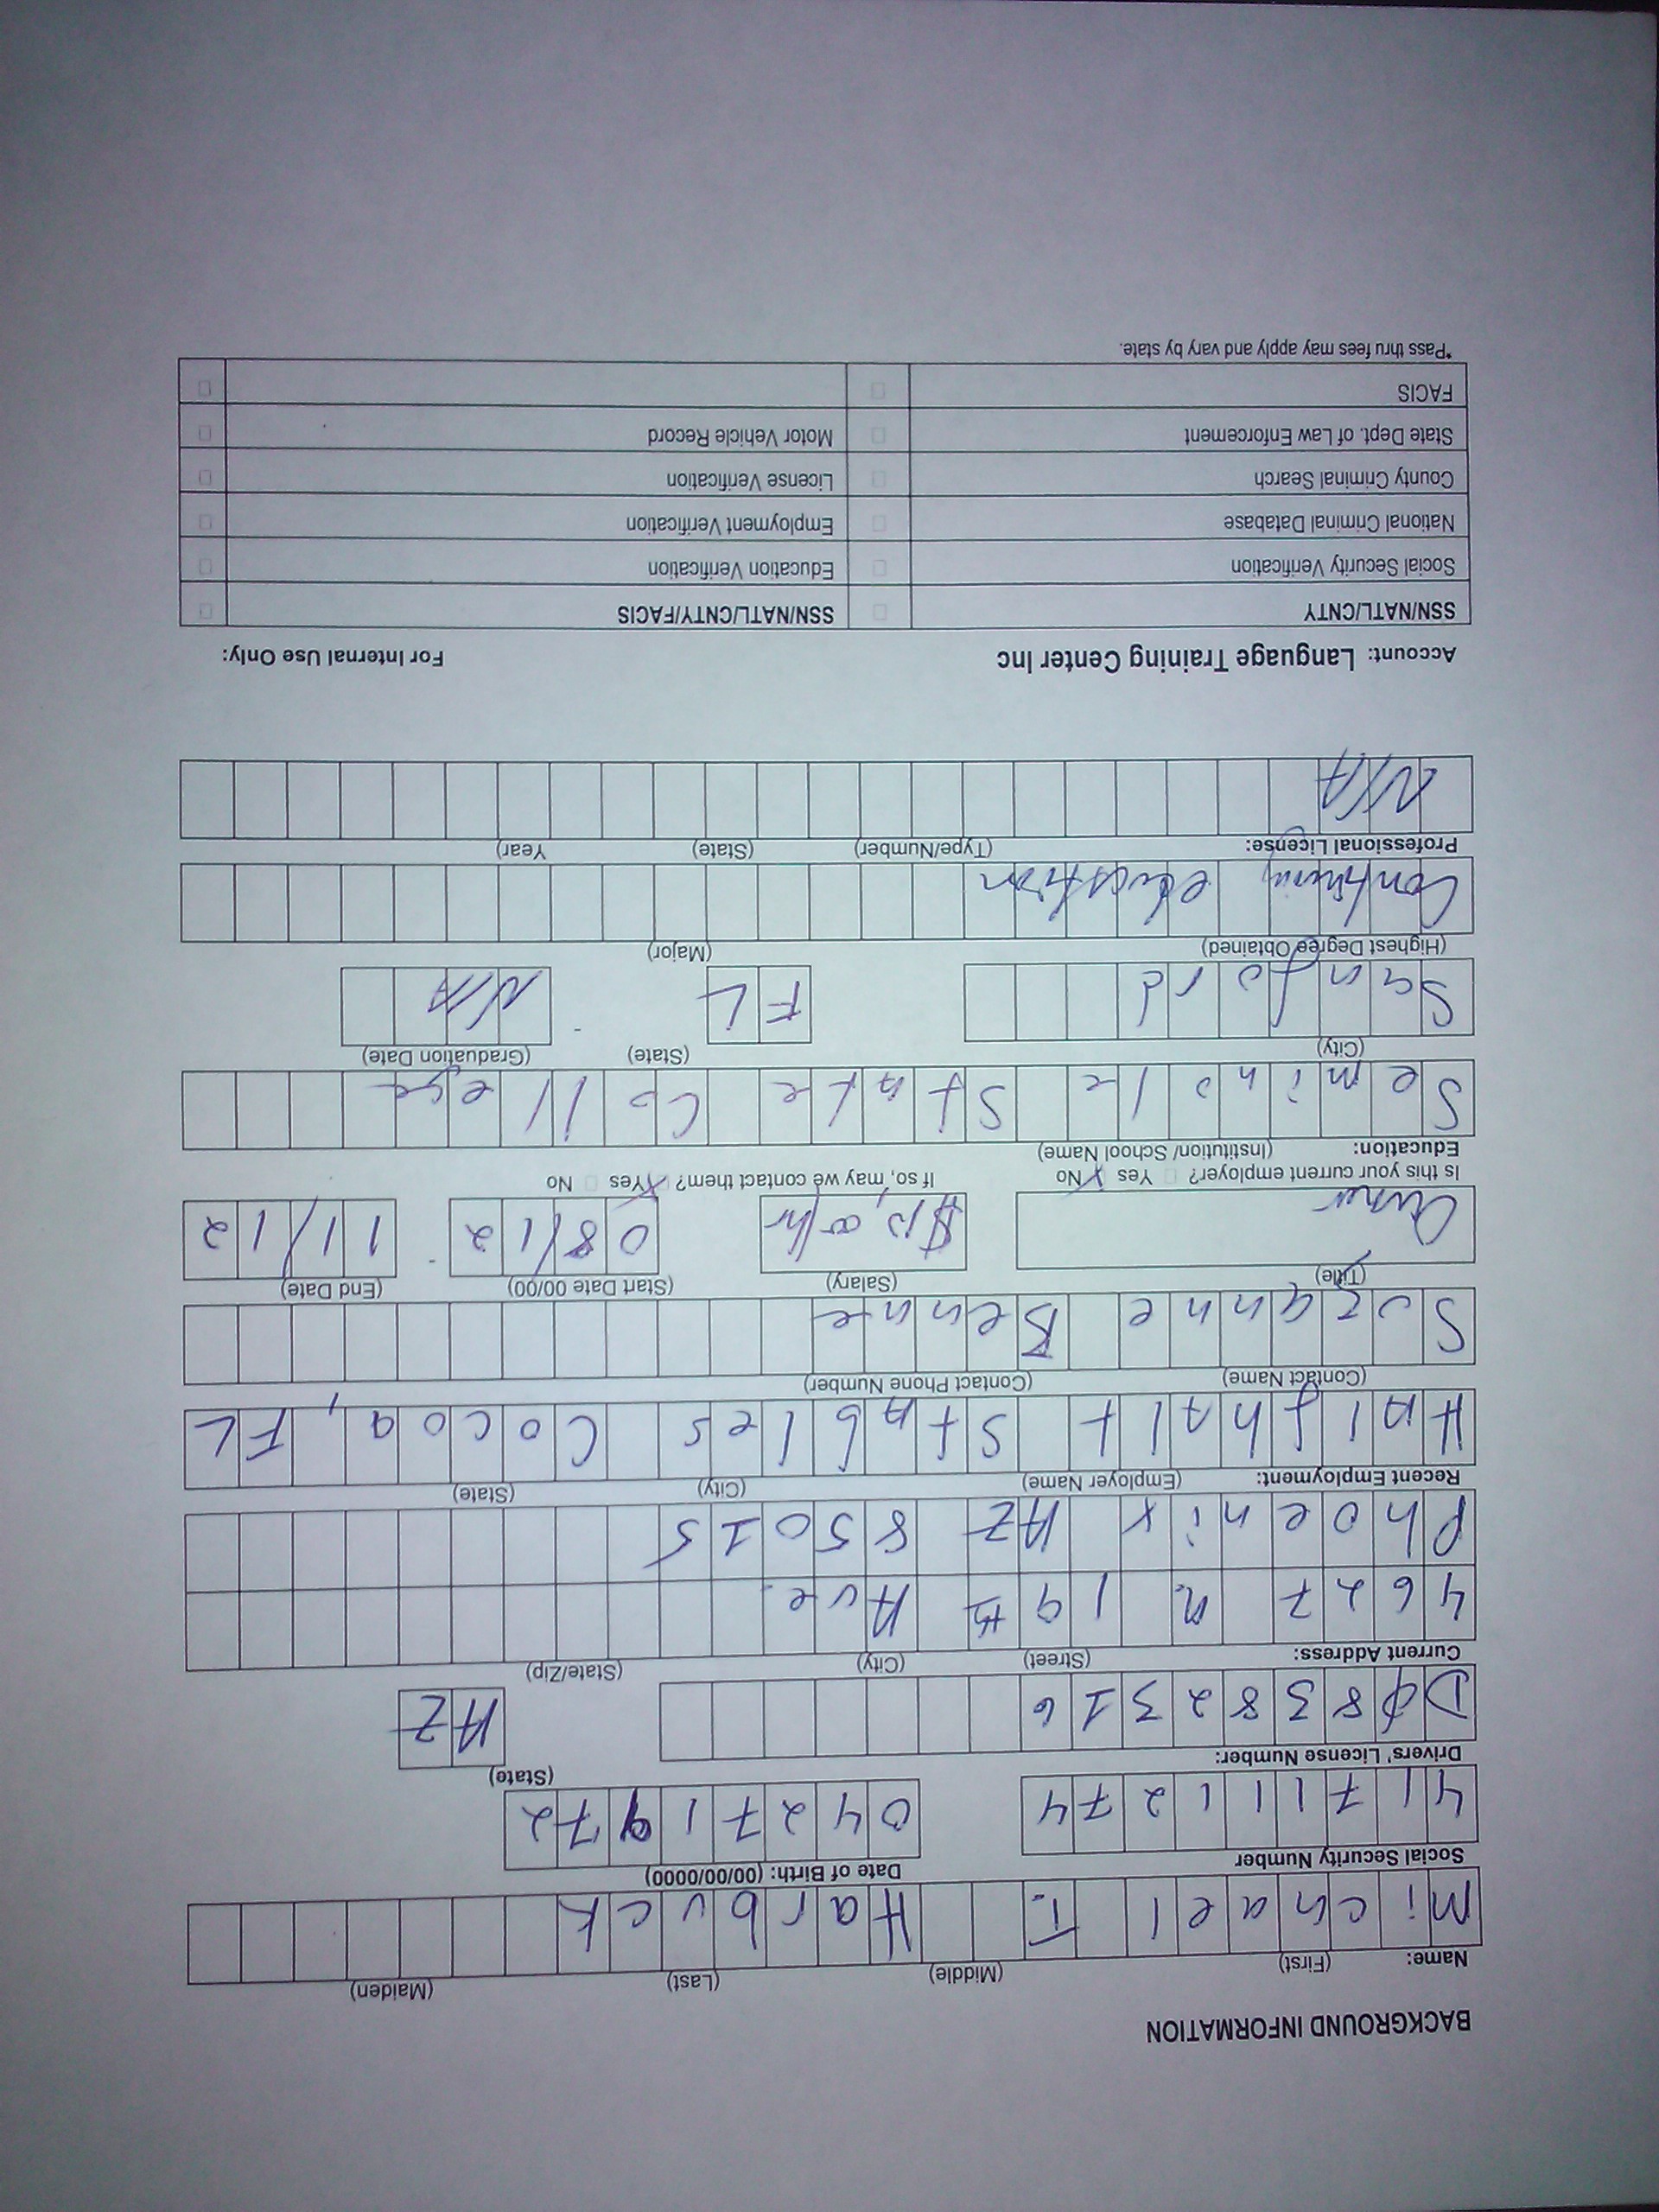 BACKGROUND INFORMATION
Name: (First) (Middle) (Last) (Maiden)
Michael T. Harbuck
Social Security Number Date of Birth: (00/00/0000)
417111274 04271972
Drivers' License Number: (State)
DØ8382316 AZ
Current Address: (Street) (City) (State/Zip)
4627 n. 19th Ave.
Phoenix AZ 85015
Recent Employment: (Employer Name) (City) (State)
Stables Cocoa, FL
(Contact Name) (Contact Phone Number)
Suzanne Benne
(Title) (Salary) (Start Date 00/00) (End Date)
/hr 08/12 11/12
Is this your current employer? Yes No If so, may we contact them? Yes No
Education: (Institution/ School Name)
Seminole State College
(City) (State) (Graduation Date)
Sanford FL N/A
(Highest Degree Obtained) (Major)
Continuing education
Professional License: (Type/Number) (State) Year)
N/A
Account: Language Training Center Inc For Internal Use Only:
SSN/NATL/CNTY SSN/NATL/CNTY/FACIS
Social Security Verification Education Verification
National Criminal Database Employment Verification
County Criminal Search License Verification
State Dept. of Law Enforcement Motor Vehicle Record
FACIS
*Pass thru fees may apply and vary by state.